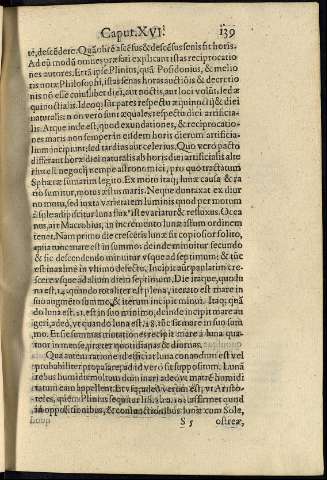 Caput. XVI. 139
tè, descẽdere. Quãobrẽ ascẽsus & descẽsus senis fit horis.
Ad eũ modũ omnes præfati explicant istas reciprocatio
nes autores. Et ñ ipse Plinius, quã Posidonius, & melio
ris notæ Philosophi, istas senas horas auctiõis & decretio
nis nõ esse cuiuslibet diei, aut noctis, aut loci volũt. sed æ
quinoctialis. Ideoq; sũt pares respectu æquinoctij & diei
naturalis: non vero sunt æquales respectu diei artificia-
lis. Atque inde est, quod exundationes, & reciprocatio-
nes maris non semper in eisdem horis dierum artificia-
lium incipiunt: sed tardius aut celerius. Quo verò pacto
differant horæ diei naturalis ab horis diei artificialis alte
rius est negocij nempe astronomici, pro quo tractatum
Sphæræ sumatim lequo. Ex moto itaq; lunæ causa & ra
tio sumitur, motus æstus maris. Neque duntaxat ex diur
no motu, sed iuxta varietatem luminis quod per motum
adipiscitur luna fluxꝰ iste variatur & refluxus. Ocea
nus, ait Macrobius, in incremento lunæ istum ordinem
tenet. Nam primo die crescentis lunæ fit copiosior solito,
atque tunc mare est in summo: deinde minuitur secundo
& sic descendendo minuitur vsque ad septimum: & tũc
est in æstime in vltimo defectu. Incipit aũt paulatim cre-
scere vsque ad alium diem septimum. Die itaque, quo lu
na est. 14. quando totaliter est plena, iterato est mare in
suo augmẽto summo, & iterum incipit minui. Itaq; quã
do luna est. 21. est in suo minimo, deinde incipit mare au
geri, adeò, vt quando luna est. 28. tũc sit mare in suo sum
mo. Et sic summas mutationes recipit mare à luna qua-
tuor in mense, præter quotidianas & diurnas.
Qua autem ratione id efficiat luna conandum est vel
probabiliter propalare, ad id verò sit suppositum. Lunã
rebus humidis multum dominari adeò, vt matrẽ humidi
tatum eam appellent. Et vsqueadeò verũm est, vt Aristo-
teles, quẽm Plinius sequitur lib. 2. ca. 102. affirmet quod
in oppositionibus, & coniunctionibus lunæ cum Sole,
S 5 ostreæ,